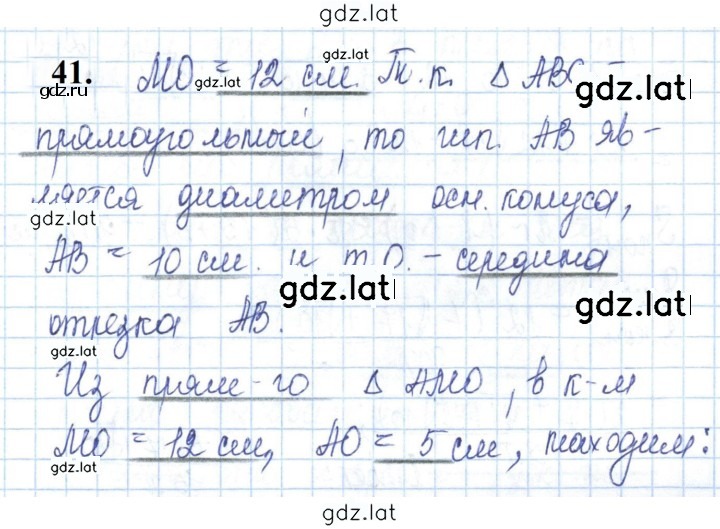 gdz.lat
41. МО = 12 см. Т.к. Δ АВС –
gdz.ru
gdz.lat
gdz.lat
прямоугольный, то гип. АВ яв-
ляется диаметром осн. конуса,
gdz.lat
АВ = 10 см. и т О. – середина
gdz.lat
gdz.lat
отрезка АВ.
gdz.lat
Из прям-го Δ АМО, в к-м
МО = 12 см, АО = 5 см, находим:
gdz.lat
gdz.lat